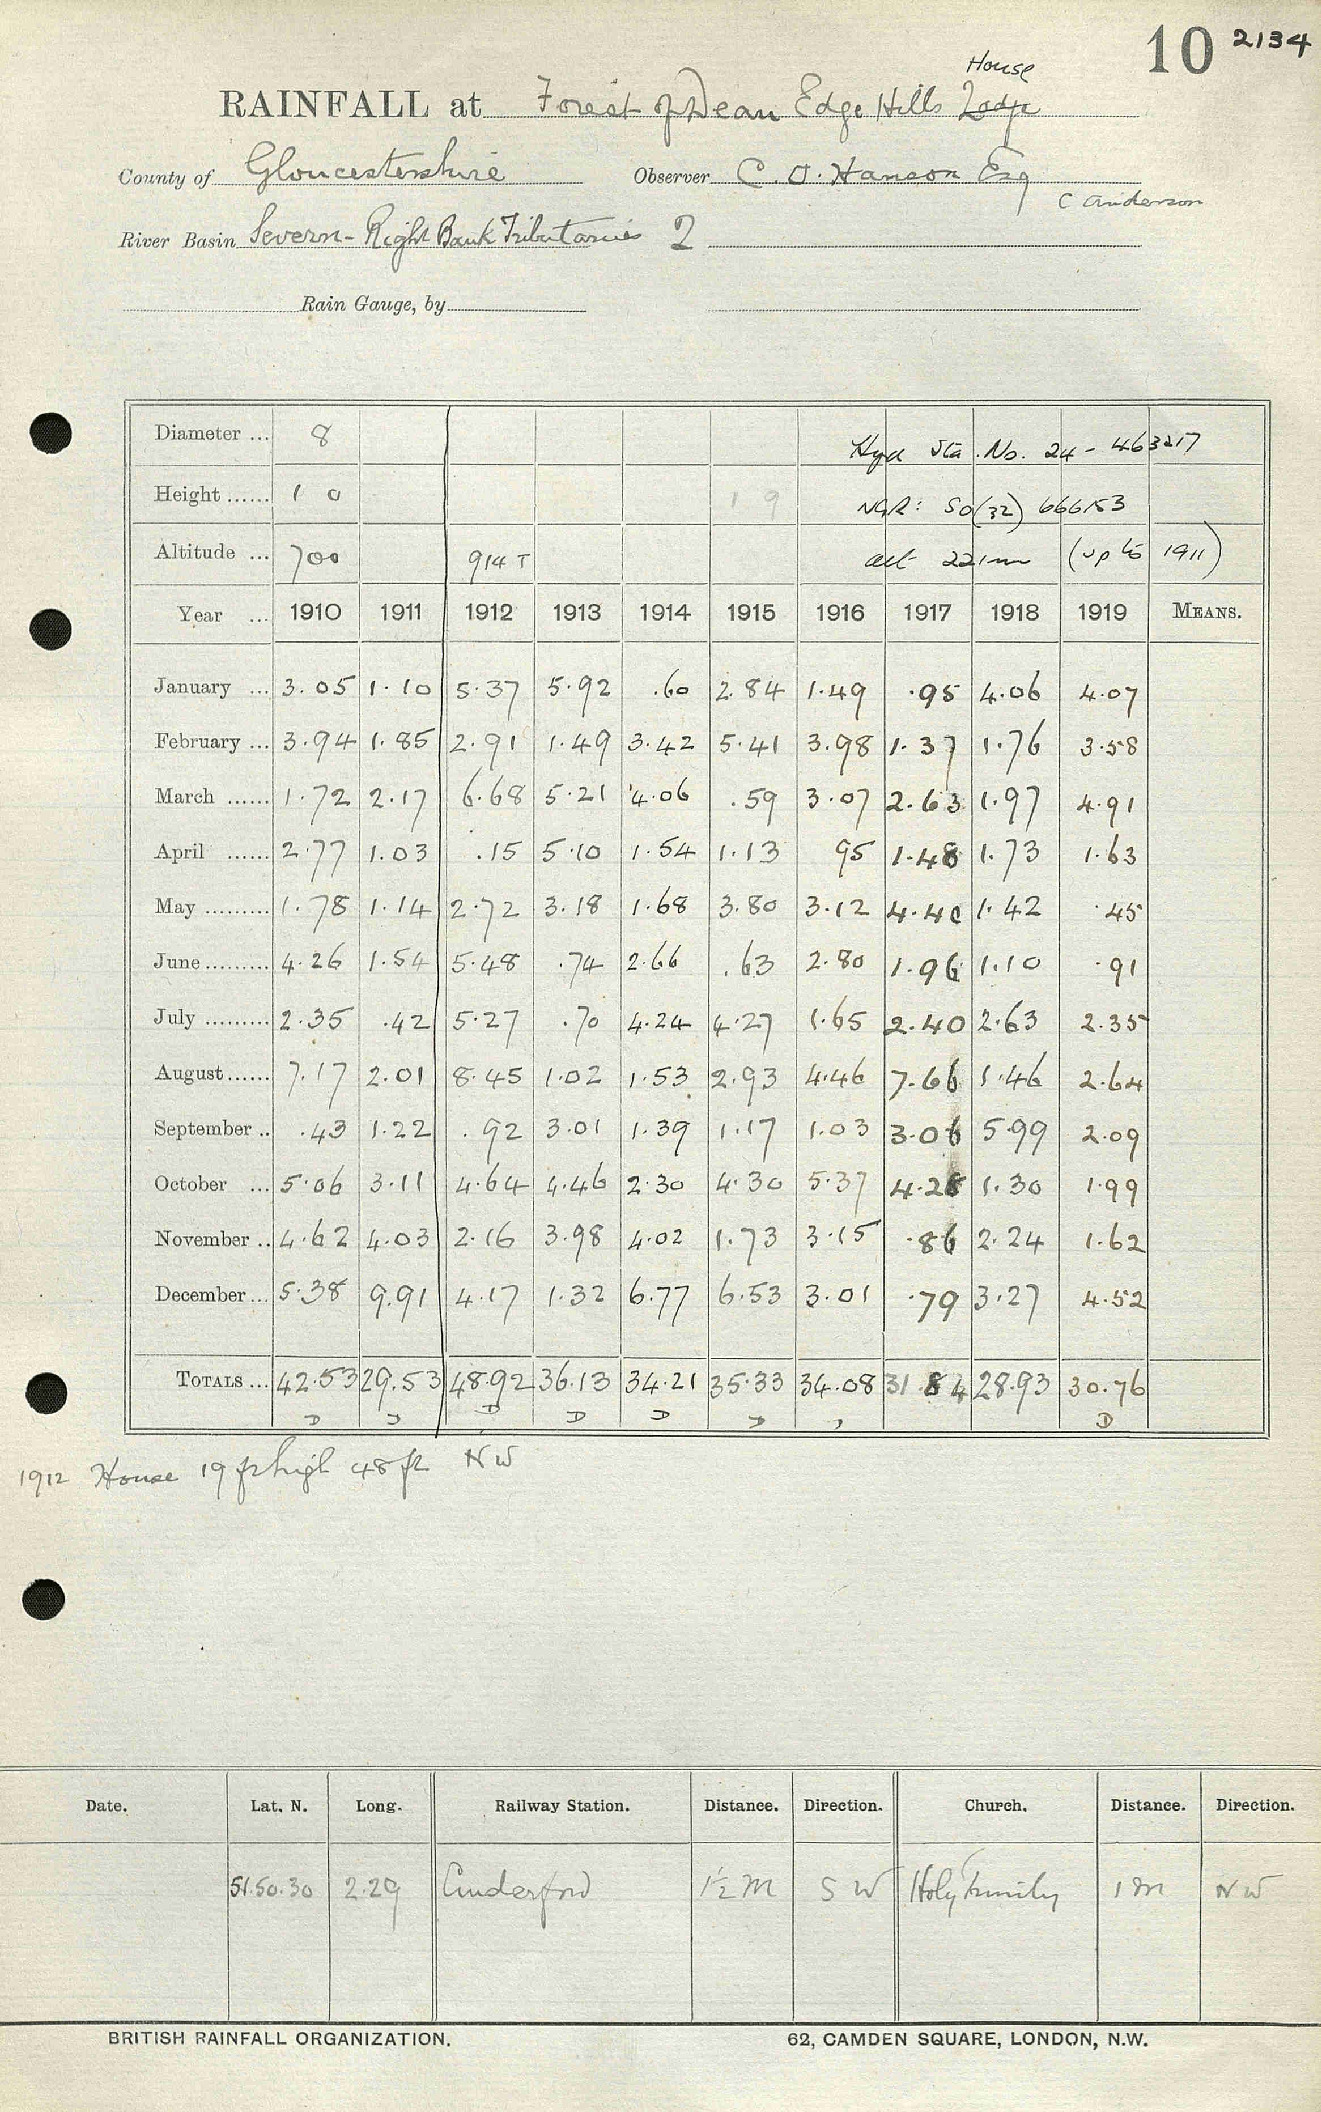 10 2134
House
RAINFALL at Forest of Dean Edge Hills Lodge
County of Gloucestershire Observer C. O. Hanson Esq
C Anderson
River Basin Severn - Right Bank Tributaries 2
Rain Gauge, by
Diameter ... 8 Hyd Sta. No. 24 - 463217
Height ...... 1 0 1 9 NGR: SO(32) 666153
Altitude ... 700 914 T alt 221m (up to 1911)
Year ... 1910 1911 1912 1913 1914 1915 1916 1917 1918 1919 MEANS.
January ... 3.05 1.10 5.37 5.92 .60 2.84 1.49 .95 4.06 4.07
February ... 3.94 1.85 2.91 1.49 3.42 5.41 3.98 1.37 1.76 3.58
March ...... 1.72 2.17 6.68 5.21 4.06 .59 3.07 2.63 1.97 4.91
April ...... 2.77 1.03 .15 5.10 1.54 1.13 95 1.48 1.73 1.63
May ......... 1.78 1.14 2.72 3.18 1.68 3.80 3.12 4.40 1.42 .45
June ......... 4.26 1.54 5.48 .74 2.66 .63 2.80 1.96 1.10 .91
July ......... 2.35 .42 5.27 .70 4.24 4.27 1.65 2.40 2.63 2.35
August ...... 7.17 2.01 8.45 1.02 1.53 2.93 4.46 7.66 1.46 2.64
September .. .43 1.22 .92 3.01 1.39 1.17 1.03 3.06 5.99 2.09
October ... 5.06 3.11 4.64 4.46 2.30 4.30 5.37 4.28 1.30 1.99
November .. 4.62 4.03 2.16 3.98 4.02 1.73 3.15 .86 2.24 1.62
December ... 5.38 9.91 4.17 1.32 6.77 6.53 3.01 .79 3.27 4.52
TOTALS ... 42.53 29.53 48.92 36.13 34.21 35.33 34.08 31.84 28.93 30.76
D D D D D D D
1912 House 19 ft high 48 ft NW
Date. Lat. N. Long. Railway Station. Distance. Direction. Church. Distance. Direction.
51.50.30 2.29 Cinderford 1½ M S W Holy Trinity 1 M N W
BRITISH RAINFALL ORGANIZATION. 62, CAMDEN SQUARE, LONDON, N.W.